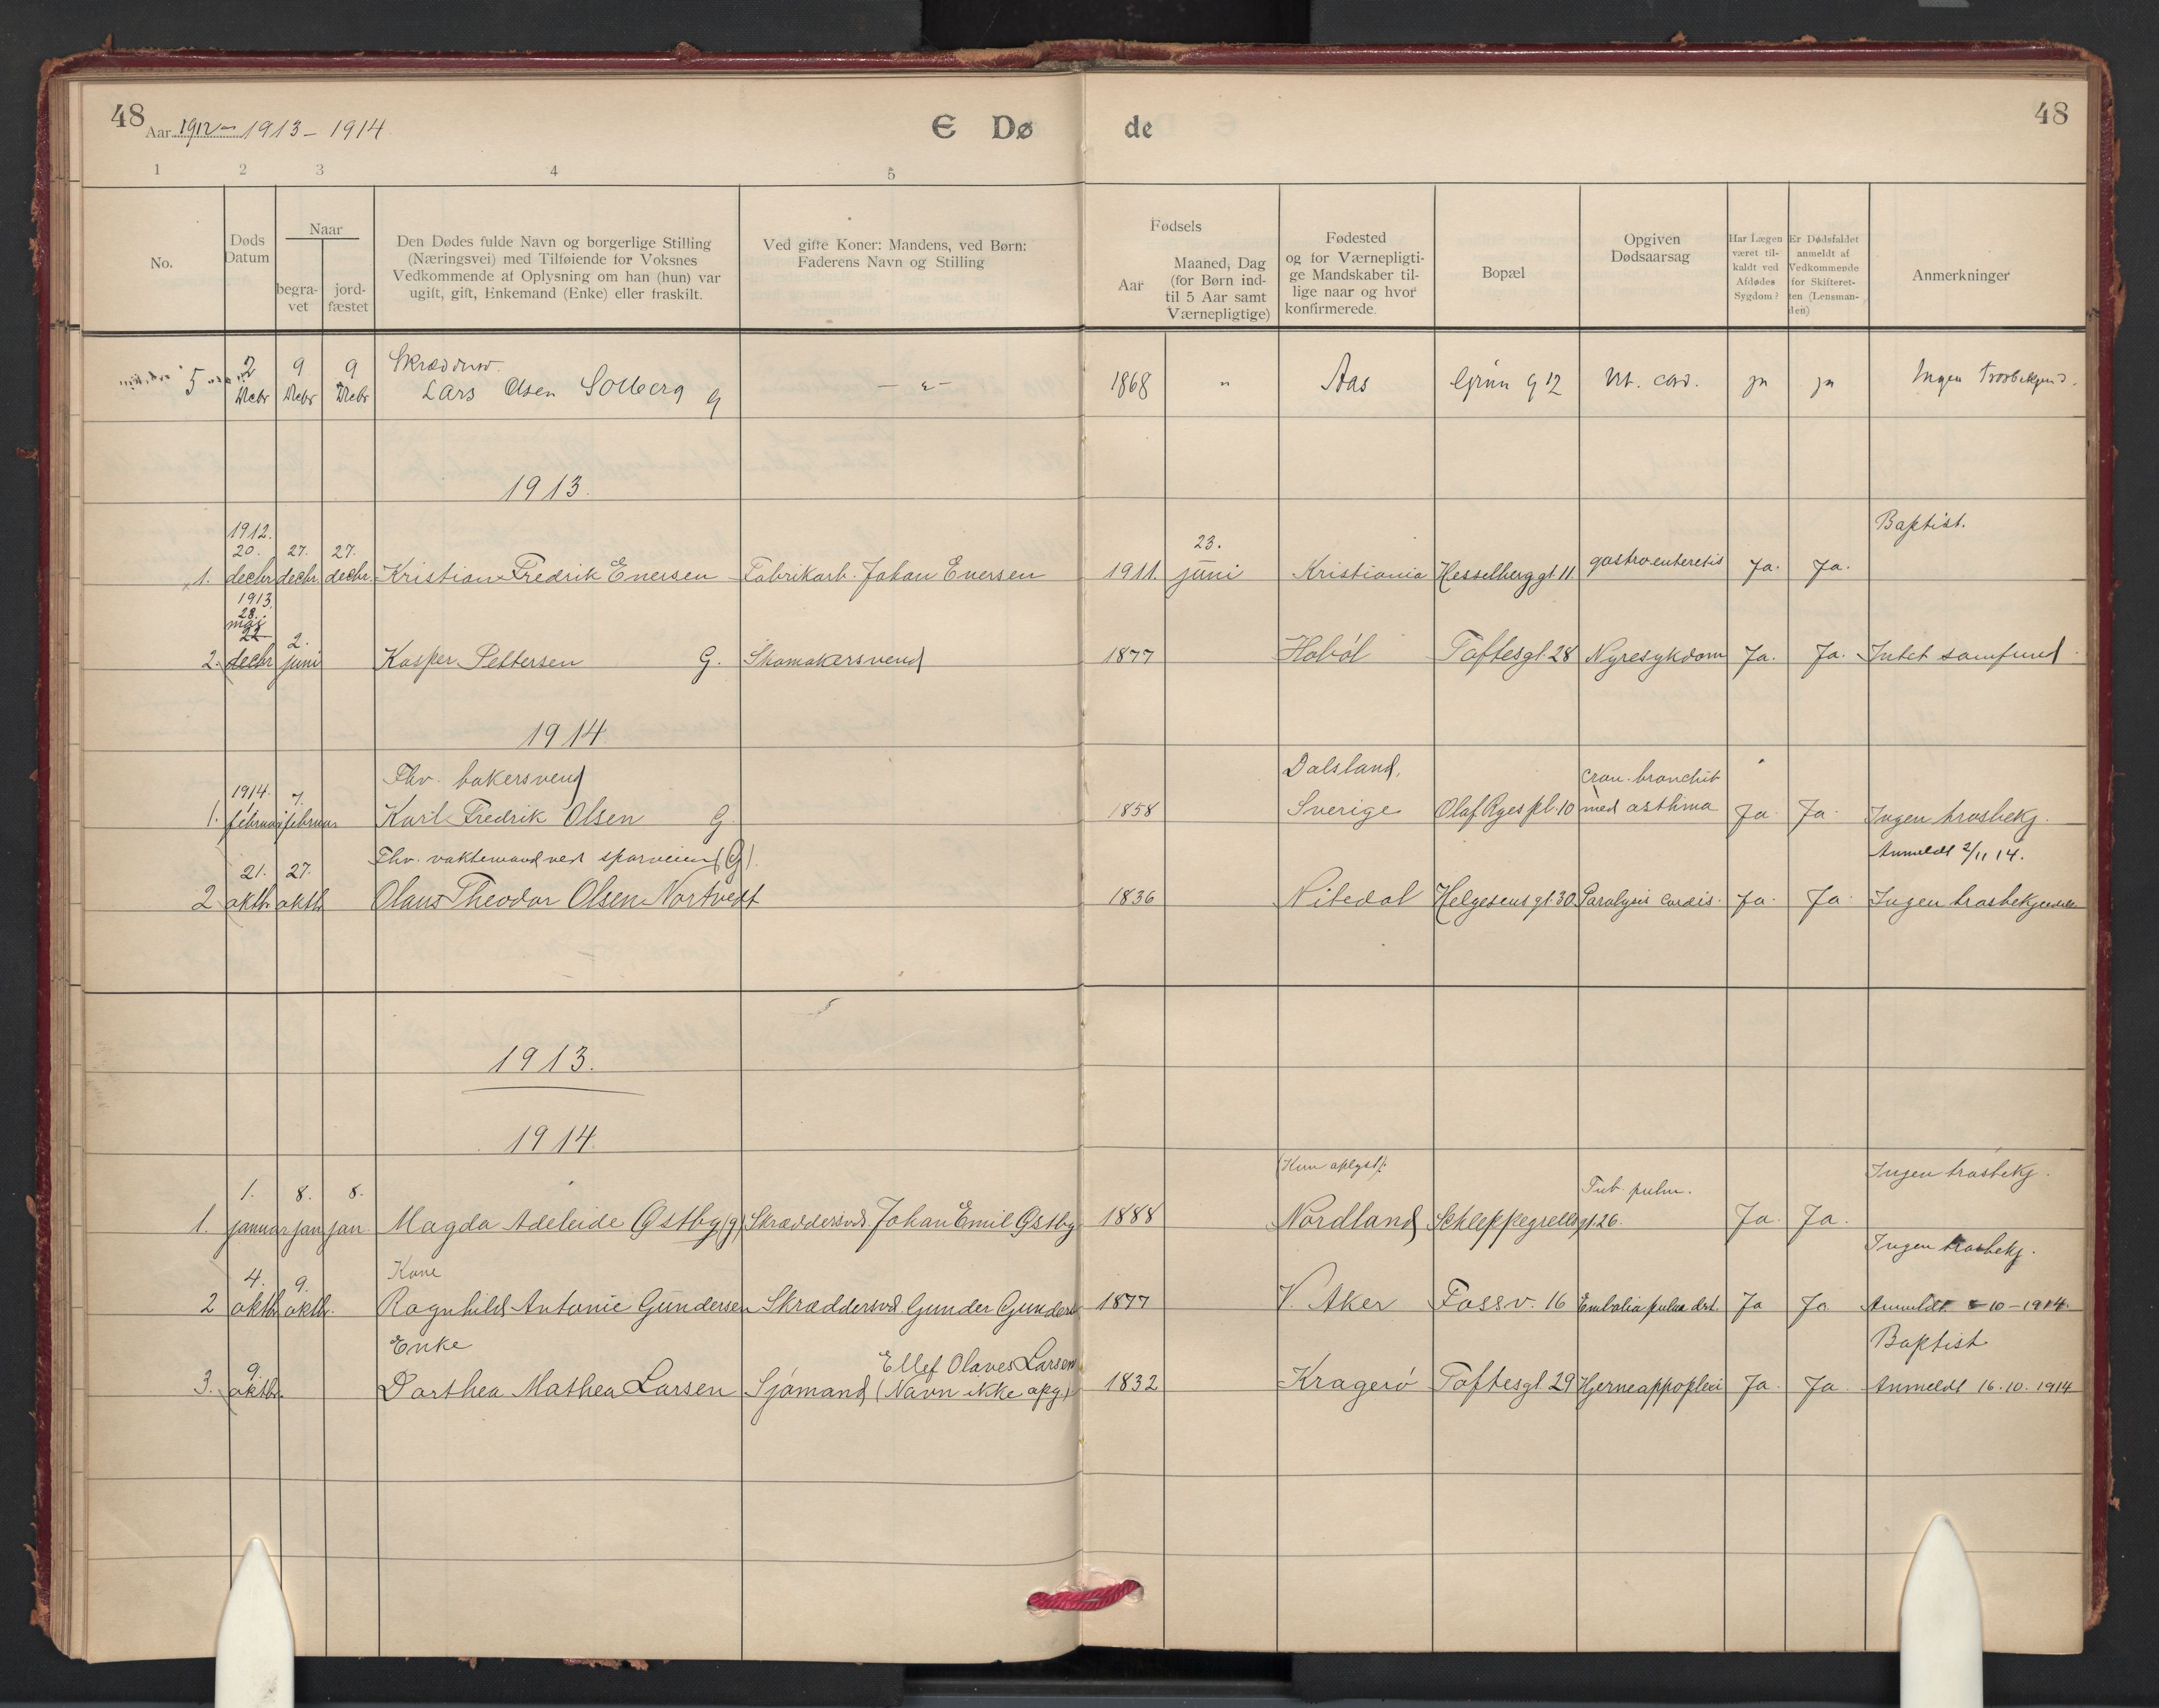 48 Aar 1912 - 1913 - 1914 E Dø de 48
1 2 3 4 5
No.
Døds Datum
Naar
begra-vet
jord-fæstet
Den Dødes fulde Navn og borgerlige Stilling
(Næringsvei) med Tilføiende for Voksnes
Vedkommende af Oplysning om han (hun) var
ugift, gift, Enkemand (Enke) eller fraskilt.
Ved gifte Koner: Mandens, ved Børn:
Faderens Navn og Stilling
Fødsels
Aar
Maaned, Dag
(for Børn ind-
til 5 Aar samt
Værnepligtige)
Fødested
og for Værnepligti-
ge Mandskaber til-
lige naar og hvor
konfirmerede.
Bopæl
Opgiven
Dødsaarsag
Har Lægen
været til-
kaldt ved
Afdødes
Sygdom?
Er Dødsfaldet
anmeldt af
Vedkommende
for Skifteret-
ten (Lensman-
den)
Anmerkninger
5 2 Decbr 9 Decbr 9 Decbr
Lars Olsen Solberg g 1868 " Aas Grün g 12 Vit. cord. ja ja Ingen
1913.
1912. Baptist.
20. 27. 27. 23.
1. decbr decbr. decbr. Kristian Fredrik Enersen Fabrikarb. Johan Enersen 1911. juni Kristiania Hesselberg gt. 11. gastroenteretis Ja. Ja.
1913.
28.
mai
22 2.
2. decbr juni Kasper Pettersen G. Skomakersvend 1877 Hobøl Toftesgt 28 Nyresykdom Ja. Ja. Intet samfund
1914
Fhv. bakersvend Dalsland, cron. bronchit
1914. 7.
1. februar februar Karl Fredrik Olsen G. 1858 Sverige Olaf Ryes pl. 10 med asthma Ja. Ja. Ingen trosbekj.
Fhv. vaktemand ved sporveien (G). Anmeldt 2/11 14.
21. 27.
2 oktb. oktb. Olaus Theodor Olsen Nortvedt 1836 Nitedal Helgesens gt. 30 Paralysis cordis. Ja. Ja. Ingen
1913.
1914.
(Kun oplyst). Ingen trosbekj.
1. 8. 8. Tub. pulm.
1. januar jan jan. Magda Adeleide Østby (g) Skræddersvd. Johan Emil Østby 1888 Nordland Schleppegrellsgt 26. Ja. Ja.
Kone Ingen trosbekj.
4. 9.
2 oktb. oktb. Ragnhild Antonie Gundersen Skræddersvd Gunder 1877 V. Aker Fossv. 16 Embolia pulm. Ja Ja Anmeldt -10-1914.
Enke Ellef Olaves Larsen Baptist
9.
3. oktb. Dorthea Mathea Larsen Sjømand (Navn ikke opg.) 1832 Kragerø Toftesgt 29 Hjerneappoplexi Ja. Ja. Anmeldt 16.10.1914